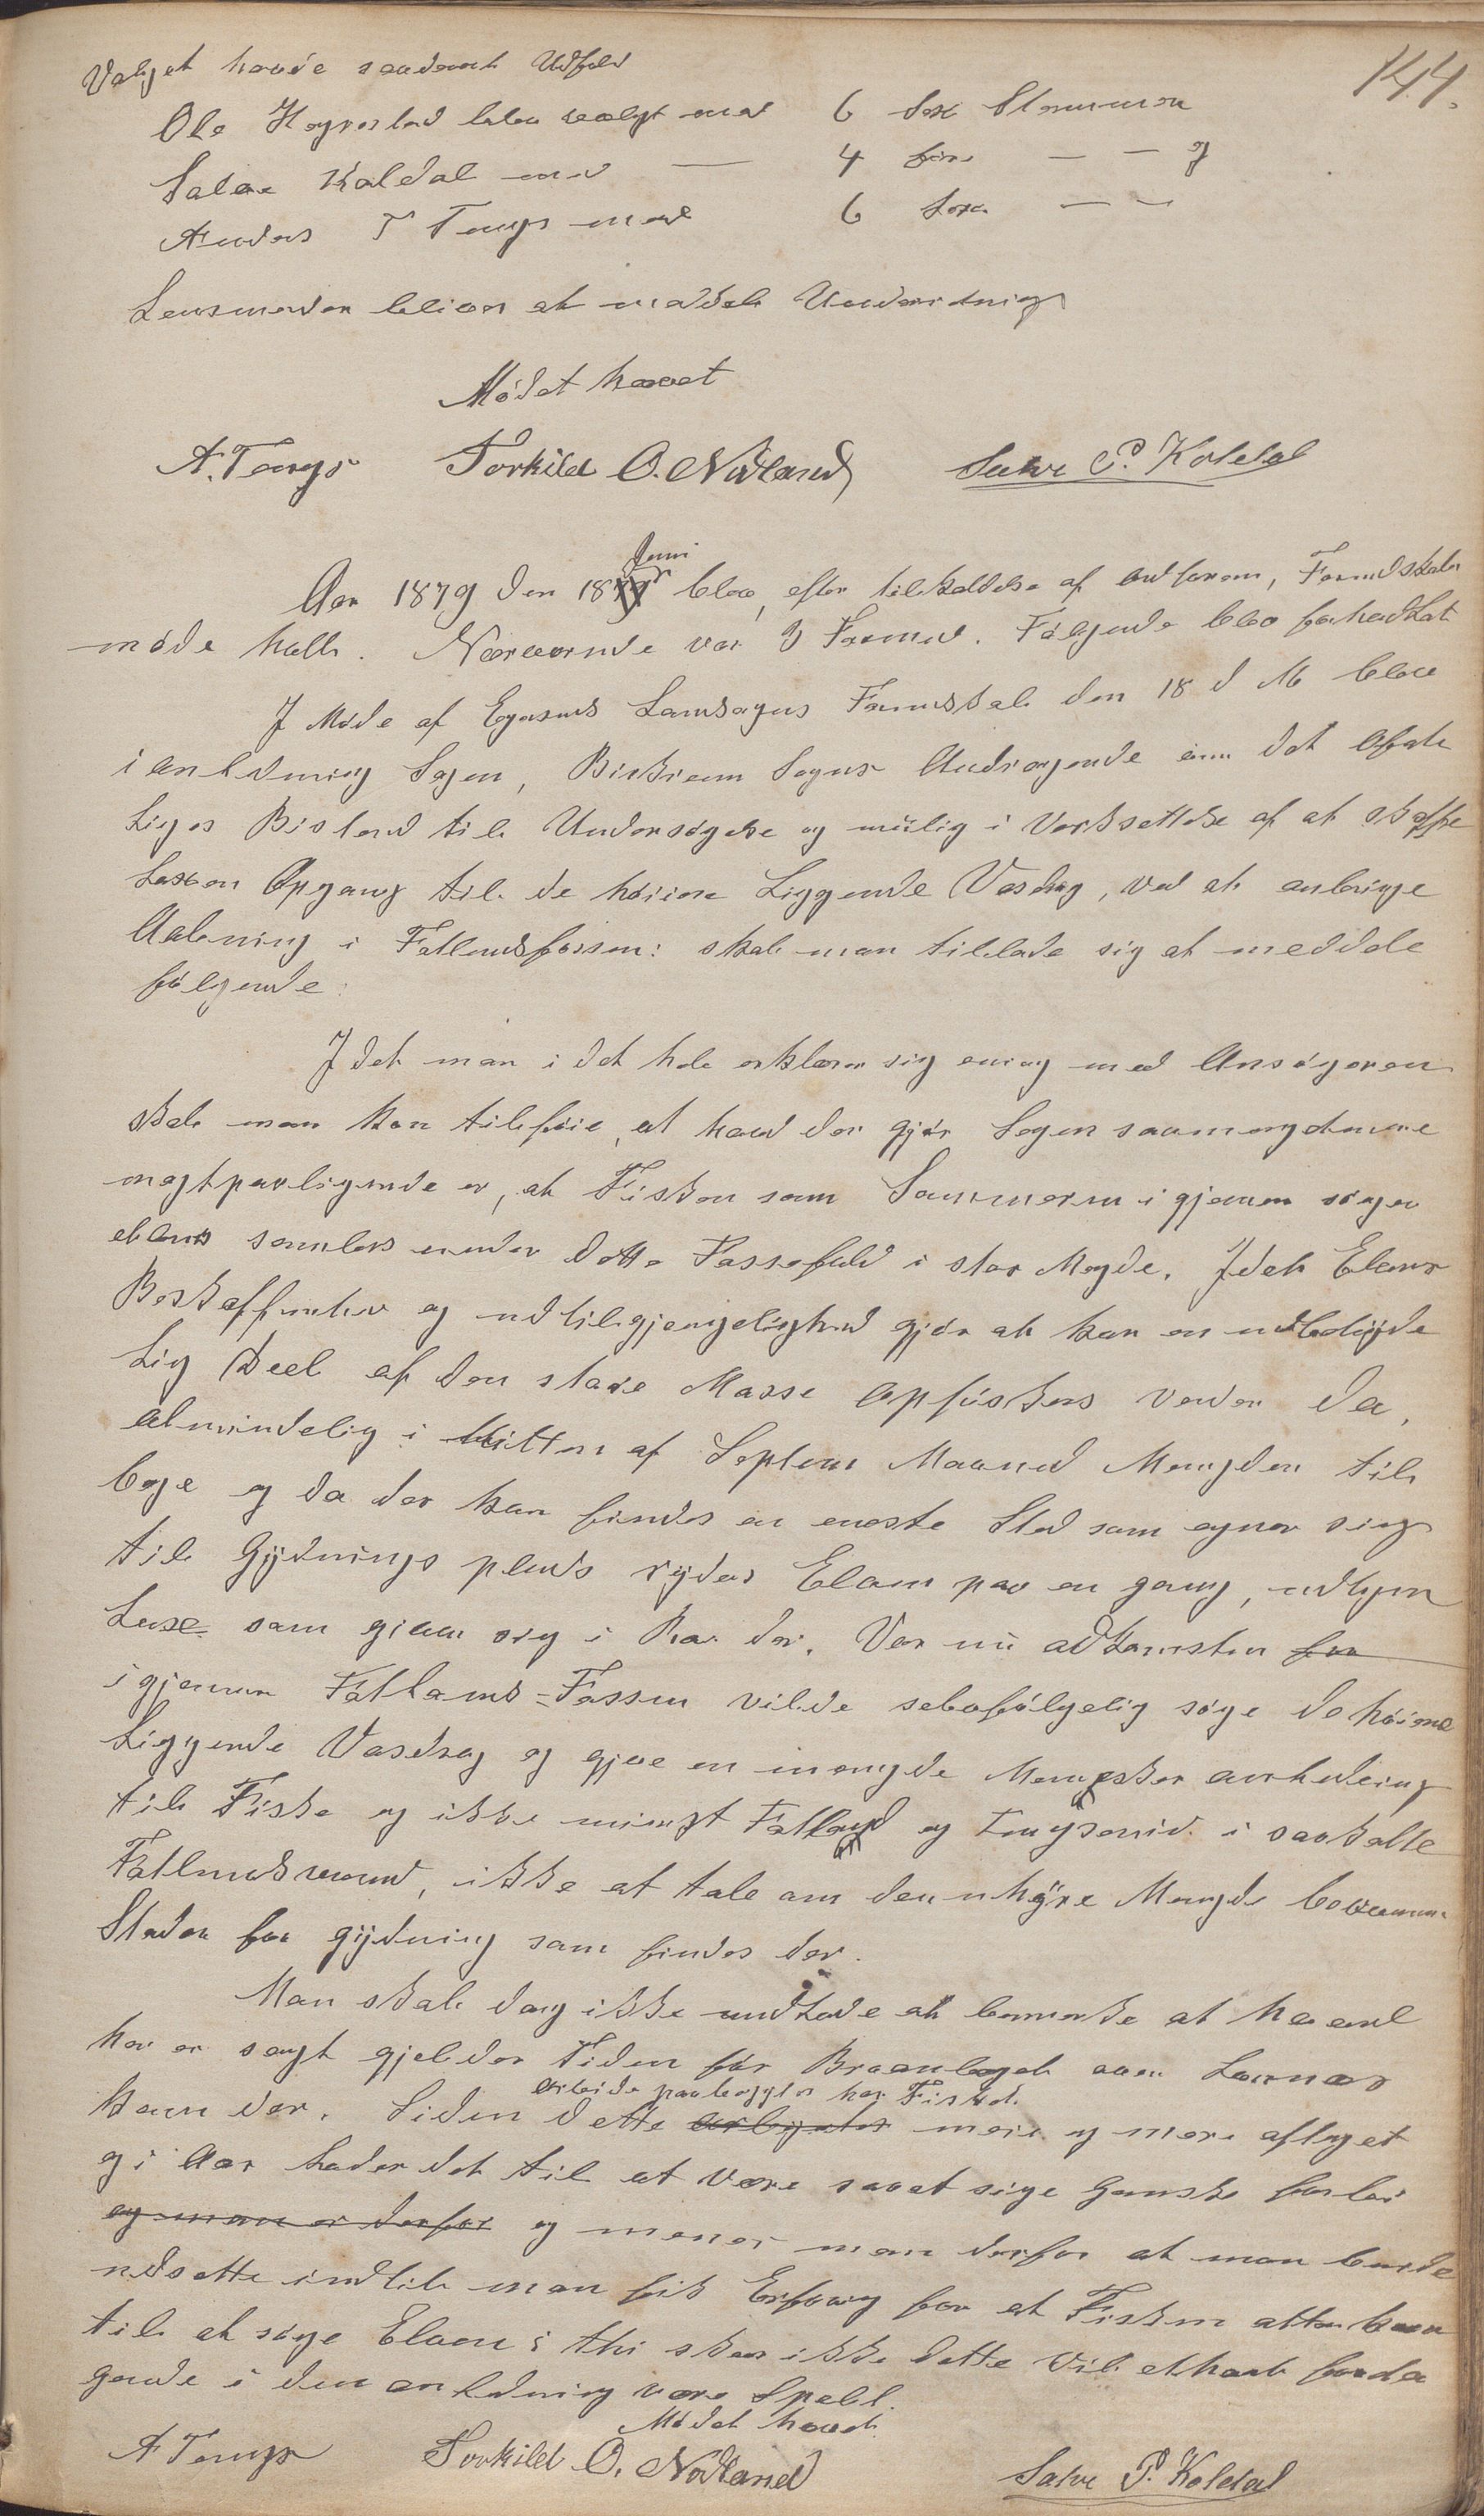 144.
Valget havde saadant Udfald
Ole Høgrestad blev valgt med 6 sex Stemmer
Salve Koldal med — 4 fire — — og
Anders T Tengs med 6 sex — —
Lensmanden bliver at meddele Underretning
Mødet hævet
A. Tengs Torkild O. Nodland Salve P. Koldal
Aar 1879 den 18 Juni blev, efter tilkaldelse af Ordføreren, Formdskabs
møde holdt. Nærværende var 3 Formd. Følgende blev forhandlet
I Møde af Egersunds Landsogns Formdskab den 18 d M blev
i anledning Sagen, Birkrem Sogns Andragende om det Offent
liges Bistand til Undersøgelse og mülig i Verksettelse af at skaffe
Laxen Opgang til de høiere Liggende Vasdrag, ved at anbringe
Aabning i Fotlandsfossen: skal man tillade sig at meddele
følgende:
I det man i det hele erklærer sig enig med Ansøgeren
skal man kun tilføie, at hvad der gjør Sagen saameget mere
magtpaaliggende er, at Fisken som Sommeren igjennem søger
elven samles under dette Fossefald i stor Mengde. Idet Elvens
Beskaffenhed og utilgjengelighed gjør at kun en ubetyde
lig Deel af den store Masse opfiskes vender da,
almindelig i Mitten af Septem Maaned Mengden til
bage og da der kun findes en eneste Sted som egner sig
til Gydnings plads ryder Elven paa en gang, udlagen
Laxe som given sig i Ra der. Var nu adkomsten
igjennem Fotlands-Fossen vilde selvfølgelig søge de høiere
Liggende Vasdrag og give en mengde Mennesker anledning
til Fiske og ikke mingst Fotland og Tengsareid i saakalte
Fotlandsvand, ikke at tale om den uhyre Mengde beqvemme
Steder for gydning som findes der.
Man skal dog ikke undlade at bemerke at hvad
her er sagt gjelder Tiden før Broanlegget over
kom der. Siden dette arbeide paabegyntes har Fisket mere og mere aftaget
og i Aar lader det til at være saa at sige Ganske forbi
og man er derfor og mener man derfor at man burde
udsette indtil man fik Erfaring for at Fisken atter kom
til at søge Elven; thi sker ikke dette vil ethvert foreta
gende i den anledning være Spelt.
Mødet hævet
A Tengs Torkild O. Nodland Salve P. Koldal